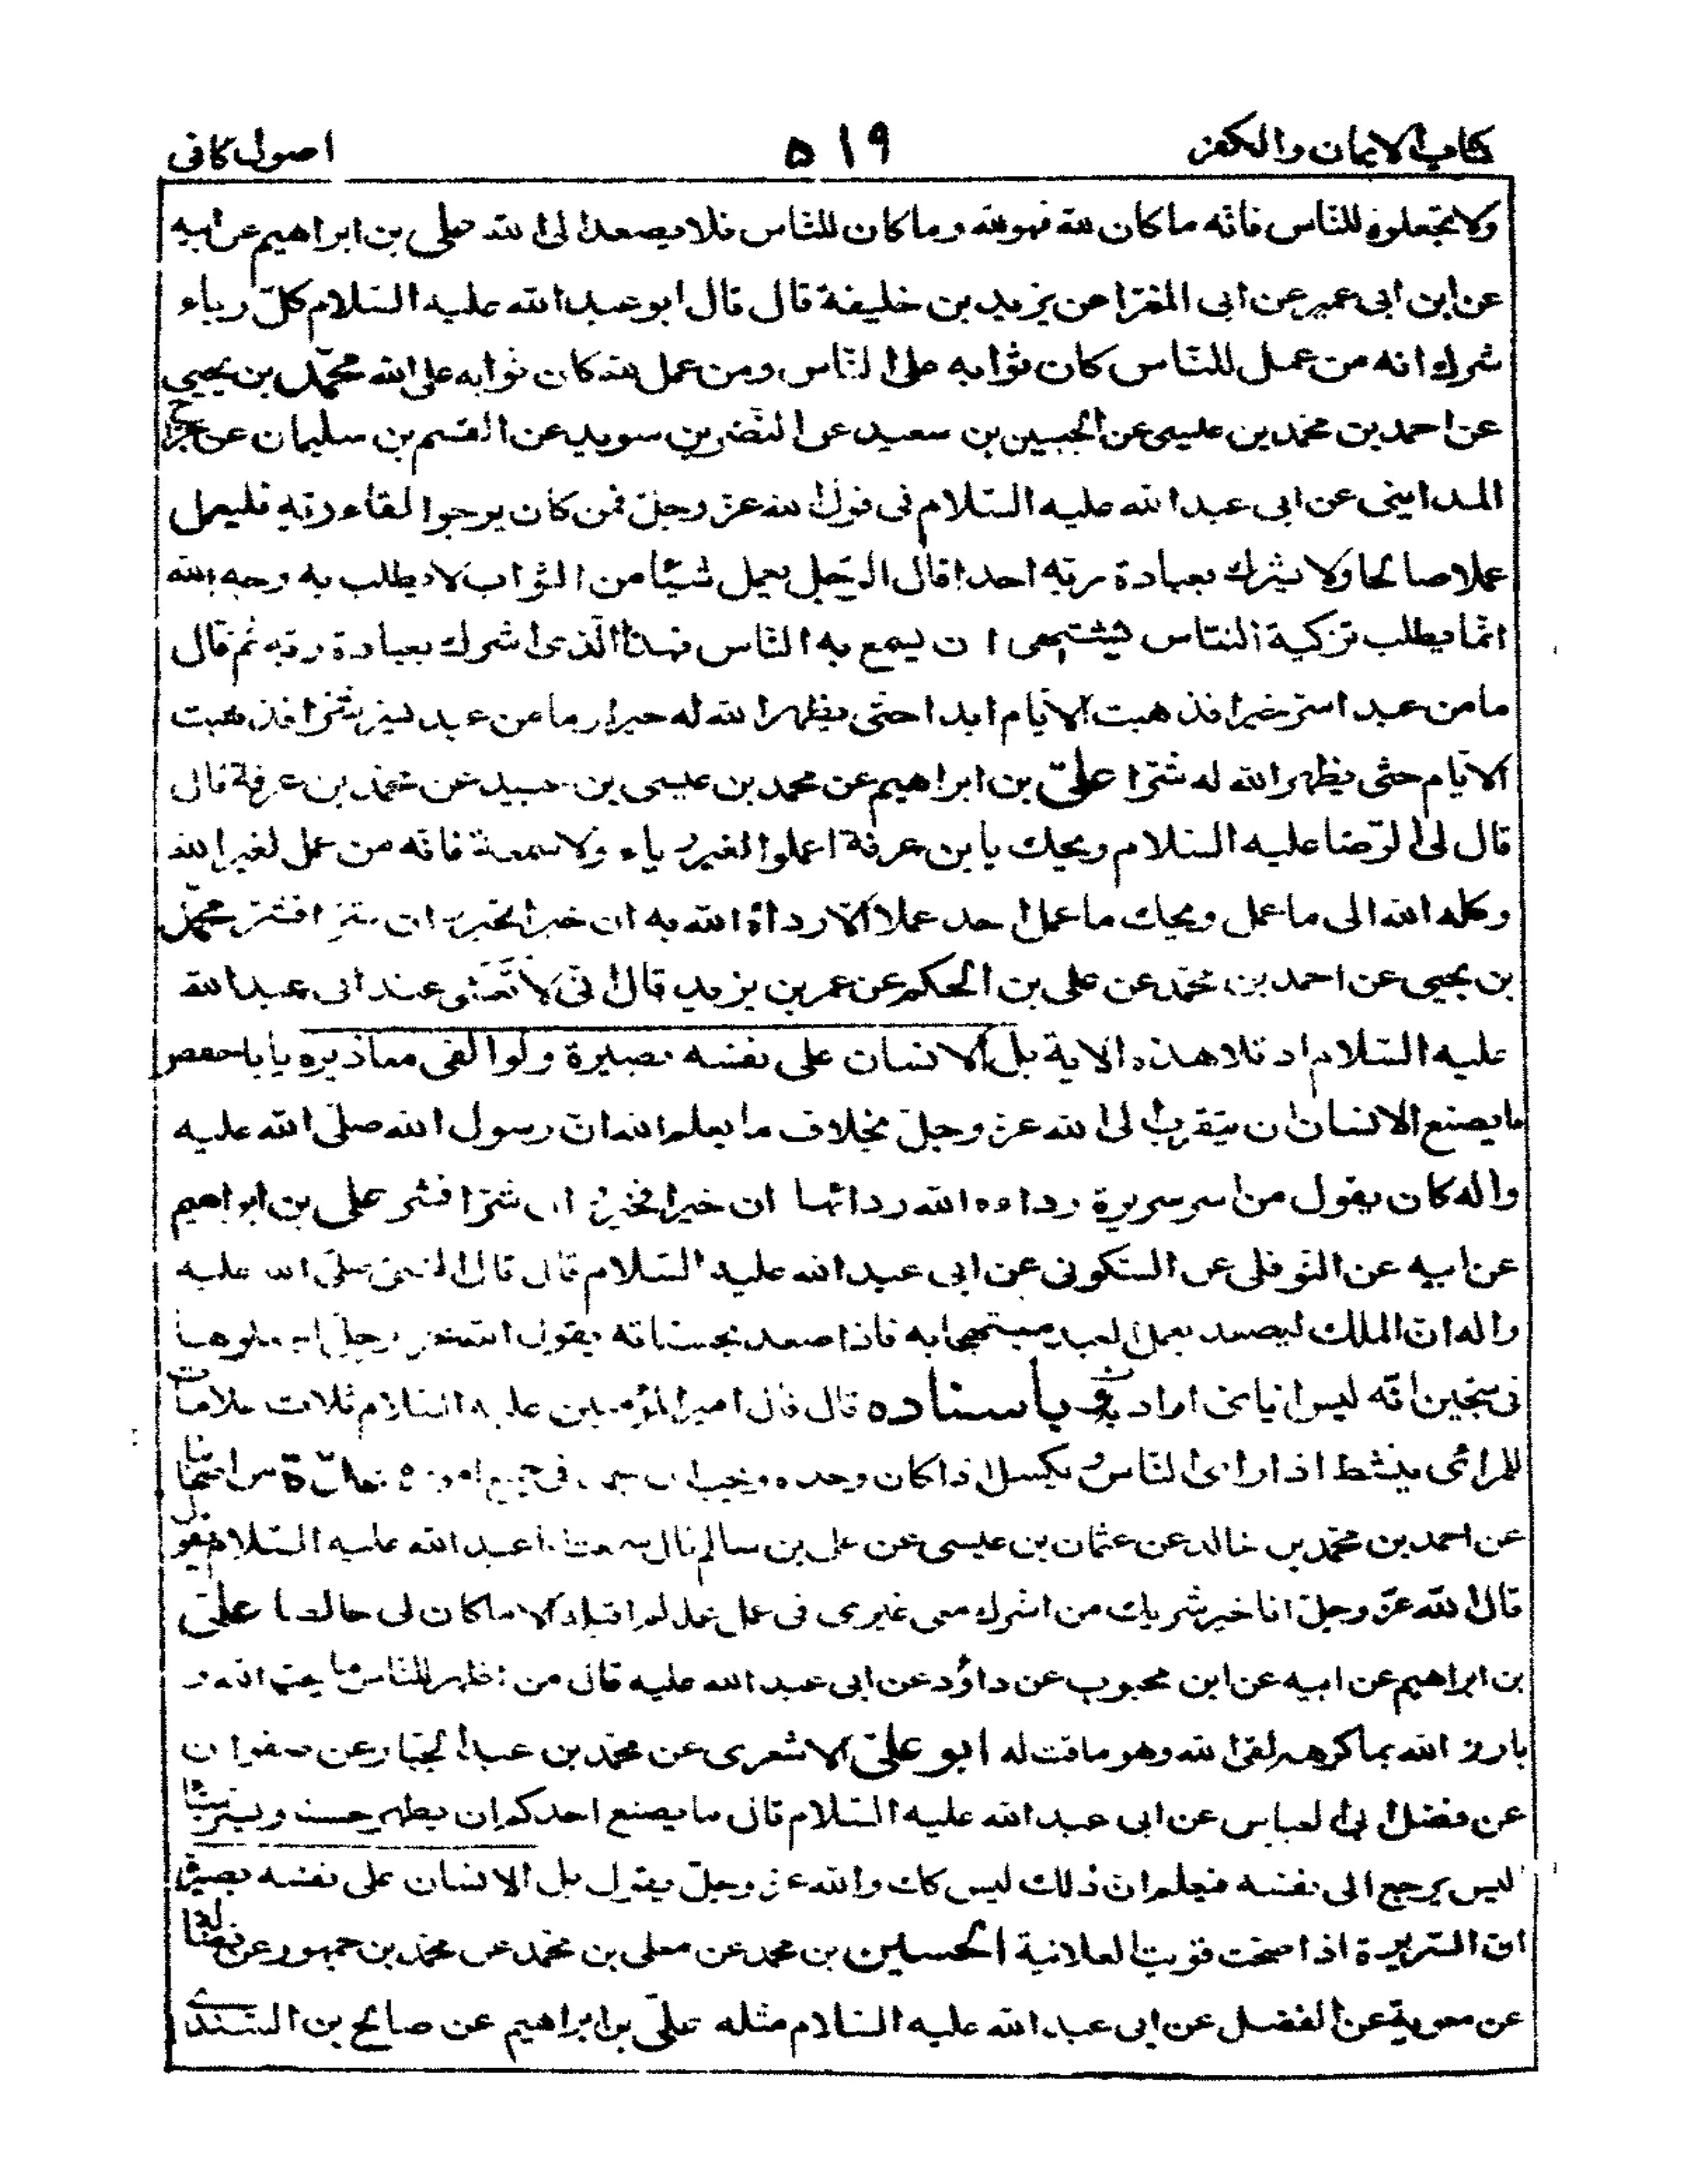 كتاب الايمان والكفر ٥١٩ اصول كافى
ولا تجعلوه للنّاس فانّه ما كان لله فهو لله وما كان للنّاس فلا يصعد الى الله على بن ابراهيم عن ابيه
عن ابن ابى عمير عن ابى المغرا عن يزيد بن خليفة قال قال ابو عبد الله عليه السّلام كلّ رياء
شرك انه من عمل للنّاس كان ثوابه على النّاس ومن عمل لله كان ثوابه على الله محمّد بن يحيى
عن احمد بن محمّد بن عيسى عن الحسين بن سعيد عن النّضر بن سويد عن القسم بن سليمان عن جراح
المداينى عن ابى عبد الله عليه السّلام فى قول الله عزّ وجلّ فمن كان يرجوا لقاء ربّه فليعمل
عملا صالحا ولا يشرك بعبادة ربّه احدا قال الرّجل يعمل شيئا من الثّواب لا يطلب به وجه الله
انّما يطلب تزكية النّاس يشتهى ان يسمع به النّاس فهذا الّذى اشرك بعبادة ربّه ثم قال
ما من عبد اسرّ خيرا فذهبت الايّام ابدا حتّى يظهر الله له خيرا وما من عبد يسرّ شرّا فذهبت
الايّام حتّى يظهر الله له شرّا علىّ بن ابراهيم عن محمد بن عيسى بن عبيد عن محمّد بن عرفة قال
قال لى الرّضا عليه السّلام ويحك يا بن عرفة اعملوا لغير رياء ولا سمعة فانّه من عمل لغير الله
وكله الله الى ما عمل ويحك ما عمل احد عملا الّا ردّاه الله به ان خيرا فخير وان شرّا فشرّ محمّد
بن يحيى عن احمد بن محمّد عن على بن الحكم عن عمر بن يزيد قال انّى لاتعشّى عند ابى عبد الله
عليه السّلام اذ تلا هذه الاية بل الانسان على نفسه بصيرة ولو القى معاذيره يا با حفص
ما يصنع الانسان ان يتقرب الى الله عزّ وجلّ بخلاف ما يعلم الله انّ رسول الله صلّى الله عليه
واله كان يقول من اسر سريرة رداءه الله ردائها ان خيرا فخير وان شرّا فشر على بن ابراهيم
عن ابيه عن النّوفلى عن السّكونى عن ابى عبد الله عليه السّلام قال قال النبى صلّى الله عليه
واله انّ الملك ليصعد بعمل العبد مبتهجا به فاذا صعد بحسناته يقول الله عز وجلّ اجعلوها
فى سجّين انّه ليس ايّاى اراد بها وباسناده قال قال امير المؤمنين عليه السّلام ثلاث علامات
للمرائى ينشط اذا راى النّاس ويكسل اذا كان وحده ويحب ان يحمد فى جميع اموره عدّة من اصحابنا
عن احمد بن محمّد بن خالد عن عثمان بن عيسى عن على بن سالم قال سمعت ابا عبد الله عليه السّلام يقول
قال الله عزّ وجلّ انا خير شريك من اشرك معى غيرى فى عمل عمله لم اقبله الا ما كان لى خالصا علىّ
بن ابراهيم عن ابيه عن ابن محبوب عن داؤد عن ابى عبد الله عليه قال من اظهر للنّاس ما يحبّ الله و
بارز الله بما كرهه لقى الله وهو ماقت له ابو علىّ الاشعرى عن محمّد بن عبد الجبّار عن صفوان
عن فضل ابى العباس عن ابى عبد الله عليه السّلام قال ما يصنع احدكم ان يظهر حسنا ويسرّ سيّئا
اليس يرجع الى نفسه فيعلم ان ذلك ليس كك والله عزّ وجلّ يقول بل الانسان على نفسه بصيرة
انّ السّريرة اذا صحّت قويت العلانية الحسين بن محمد عن معلى بن محمّد عن محمّد بن جمهور عن فضالة
عن معوية عن الفضيل عن ابى عبد الله عليه السّلام مثله علىّ بن ابراهيم عن صالح بن السّندى